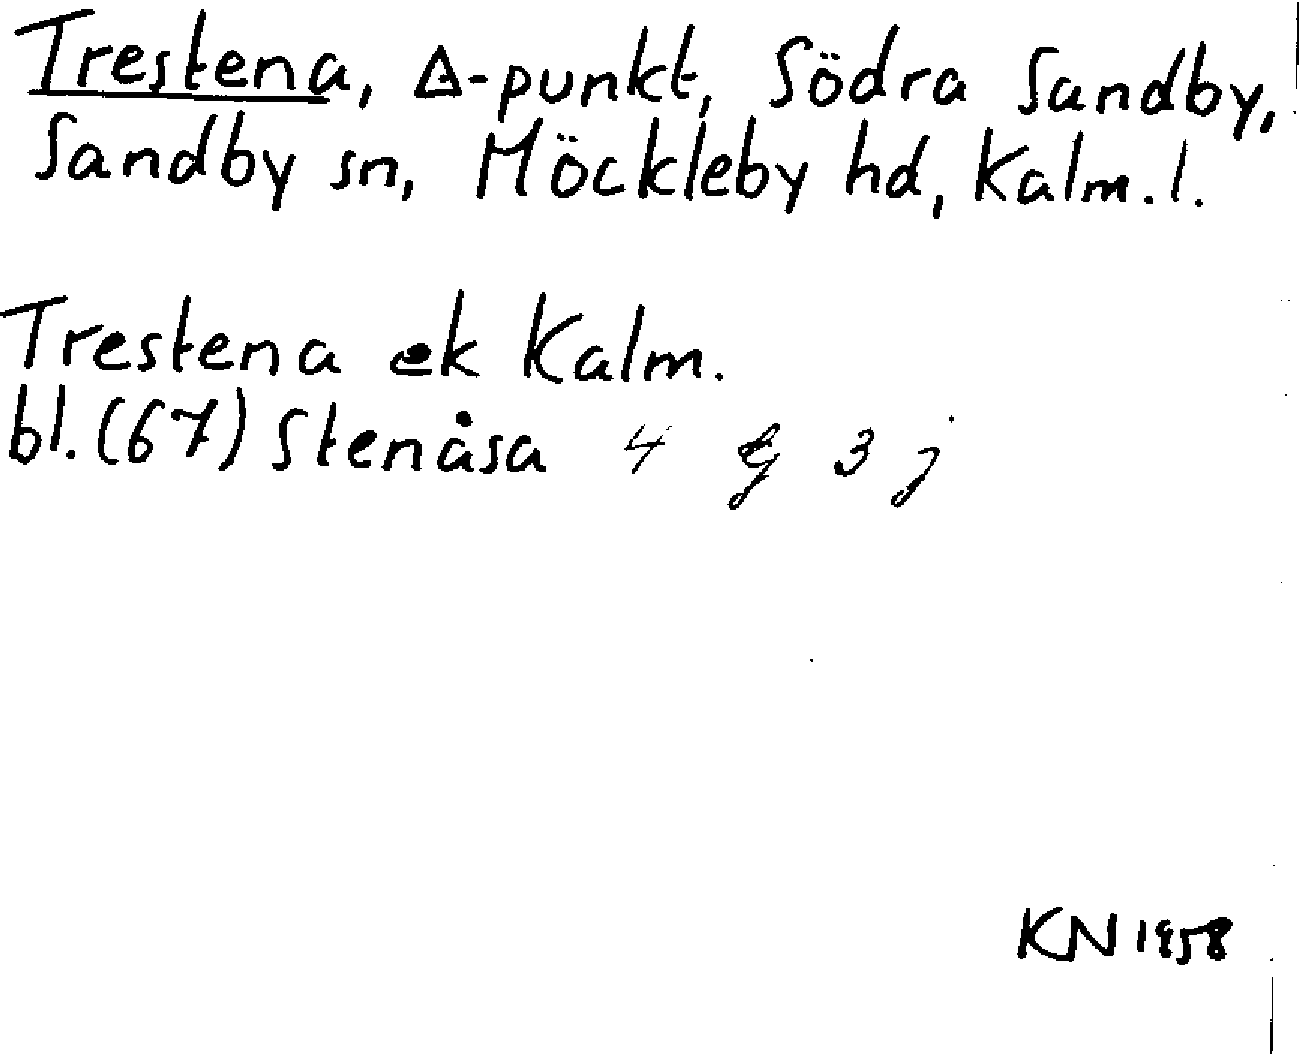 Trestena, Δ-punkt, Södra Sandby,
Sandby sn, Möckleby hd, Kalm. l.
Trestena ek Kalm.
bl. (67) Stenåsa 4 G 3 j
KN 1958